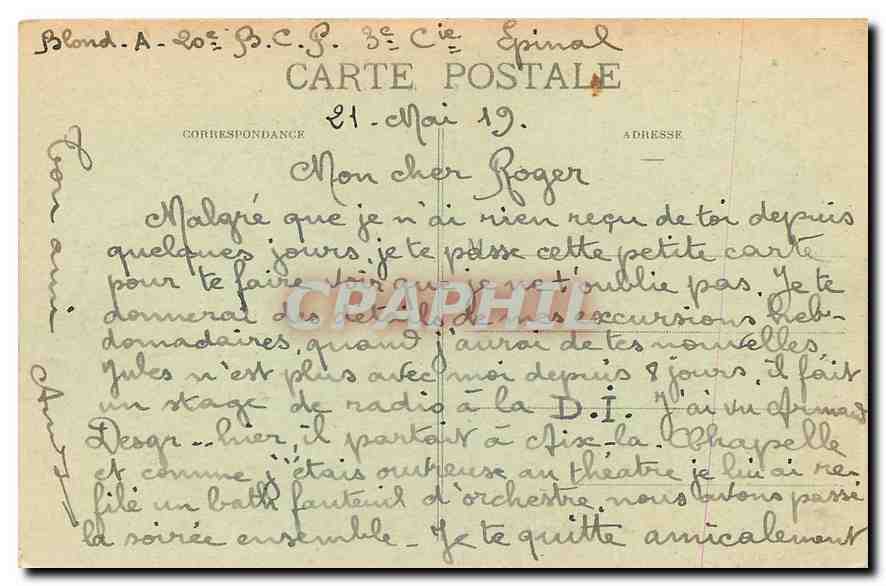 Blond. A - 20e B.C.P. 3e Cie Epinal
CARTE POSTALE
21 - Mai 19.
CORRESPONDANCE
ADRESSE
Mon cher Roger
Malgré que je n'ai rien reçu de toi depuis
quelques jours, je te passe cette petite carte
pour te faire voir que je ne t'oublie pas. Je te
donnerai des détails de mes excursions heb-
domadaires, quand j'aurai de tes nouvelles.
Jules n'est plus avec moi depuis 8 jours, il fait
un stage de radio à la D.I. J'ai vu Armand
Desgr... hier, il partait à Aix-la-Chapelle
et comme j'étais ouvreuse au théâtre je lui ai re-
filé un bath fauteuil d'orchestre, nous avons passé
la soirée ensemble - Je te quitte amicalement
Ton ami
CPAPHIL